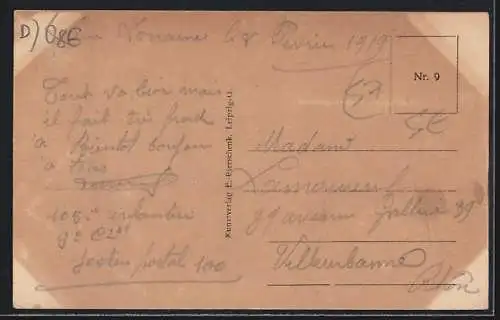 D) 08E
Lorraine le 8 Fevrier 1919
57
Nr. 9
Tout va bien mais
il fait très froid
a Bientot
a tous
105e infanterie
9e Cie
Secteur postal 100
Kunstverlag E. Eierschenk, Leipzig-G.
Madame
99 avenue Galline 99
Villeurbanne
Rhône